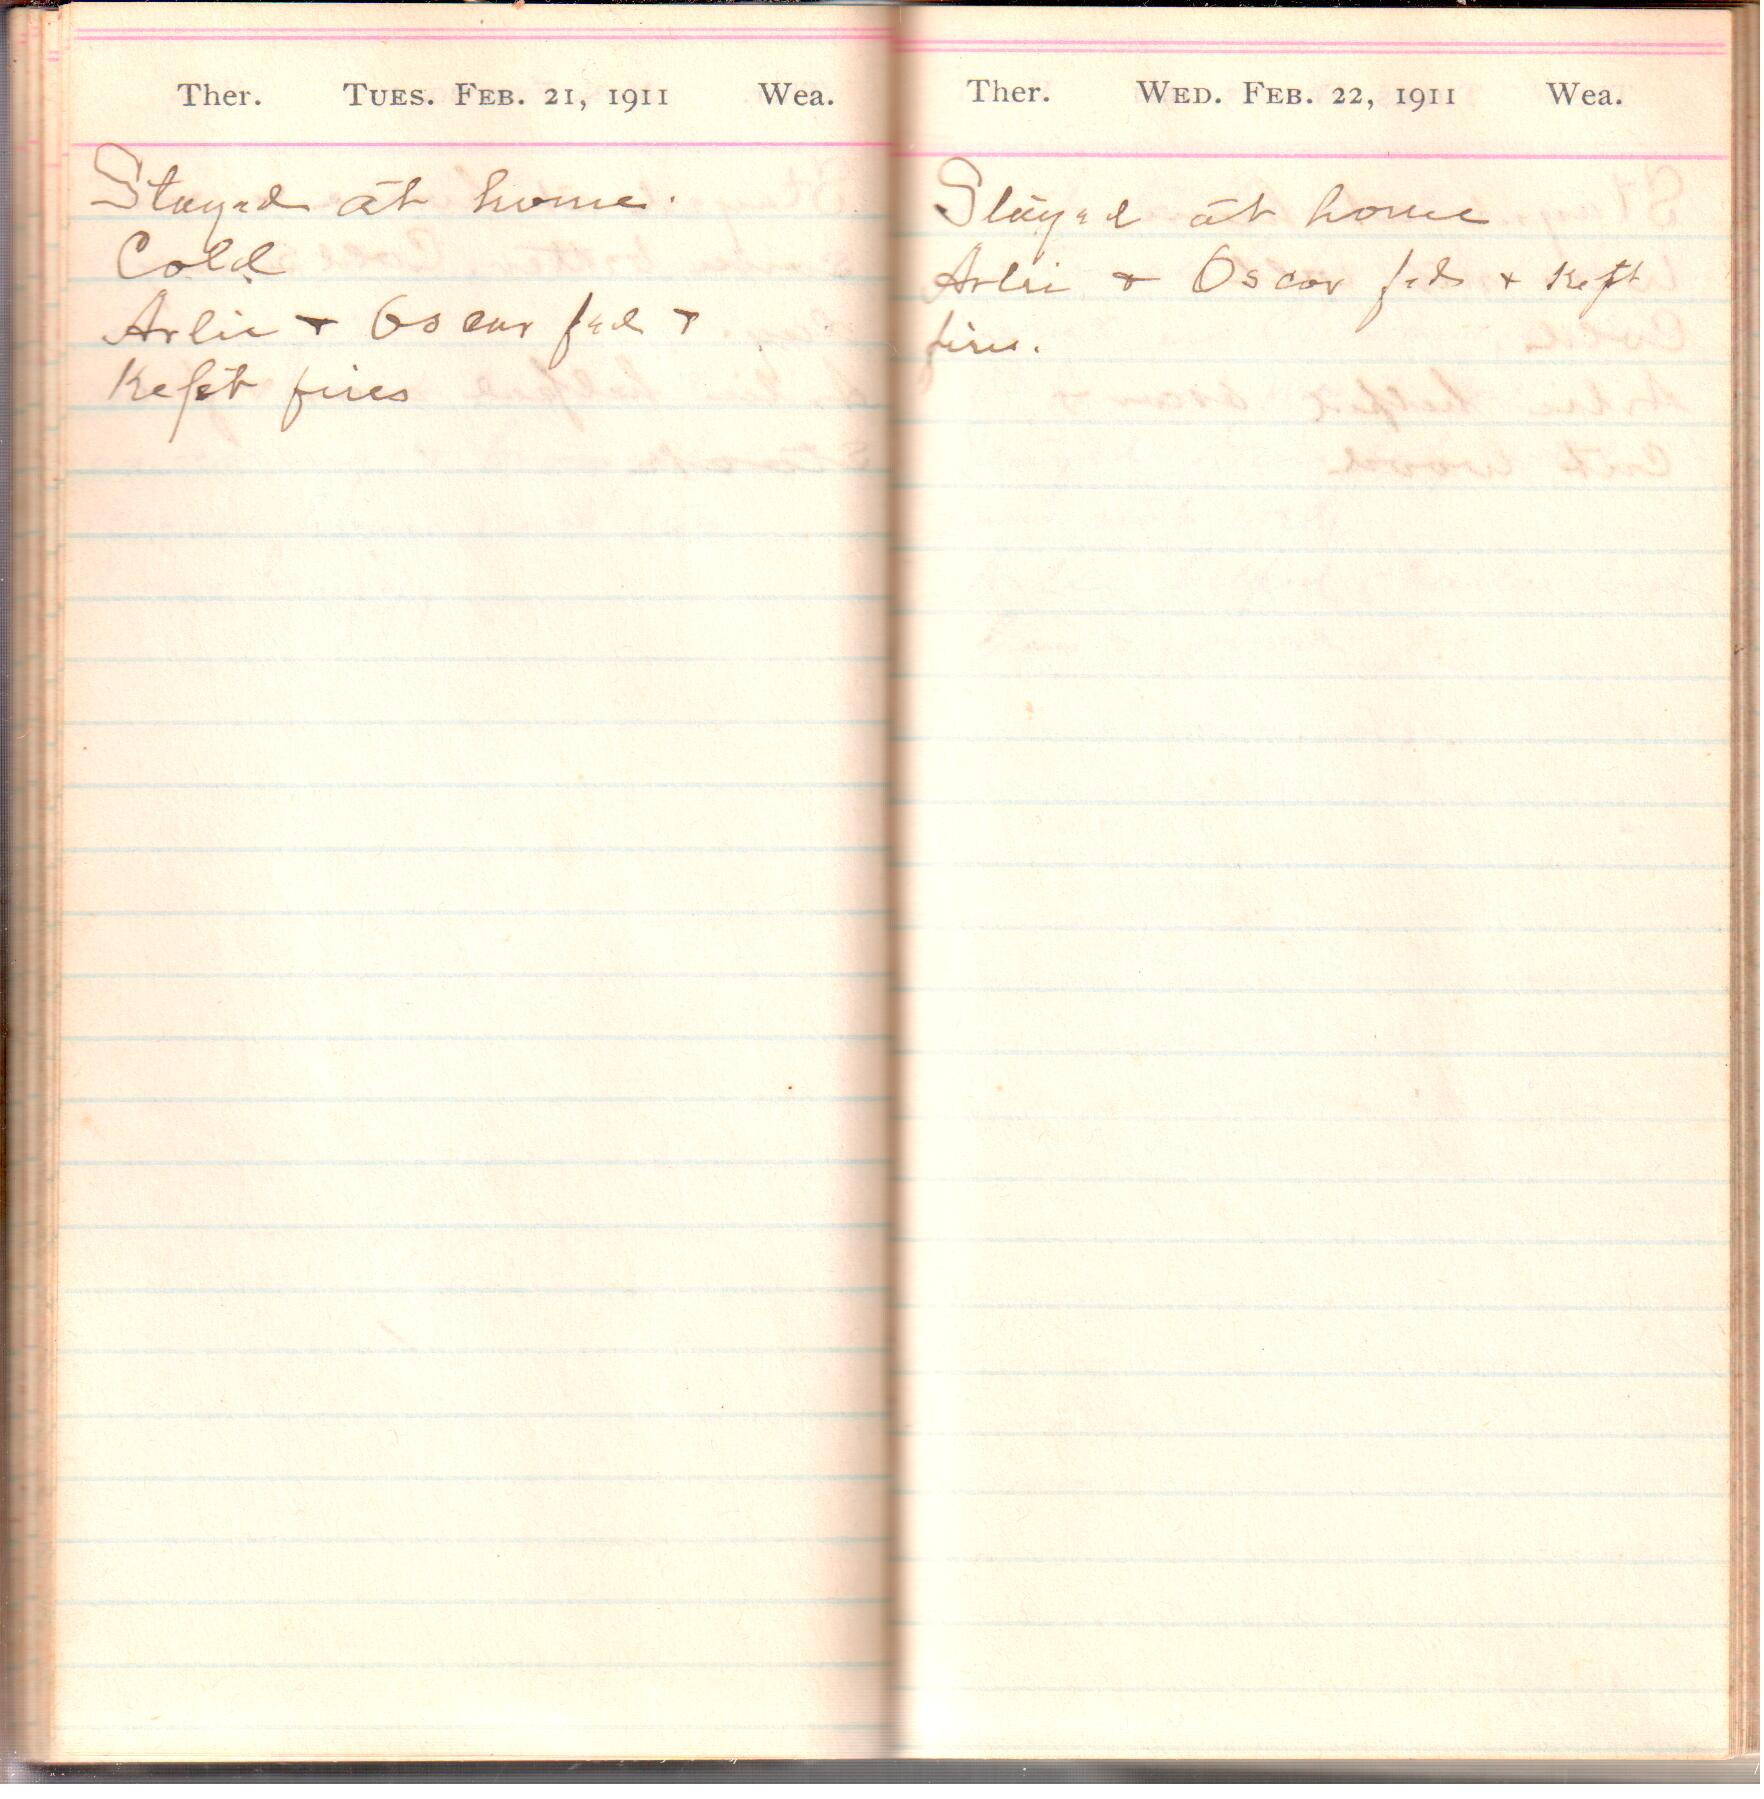 Ther. Tues. Feb. 21, 1911 Wea.
Stayed at home.
Cold
Arlie + Oscar fed +
Kept fires
Ther. Wed. Feb. 22, 1911 Wea.
Stayed at home
Arlie + Oscar fed + Kept
fires.